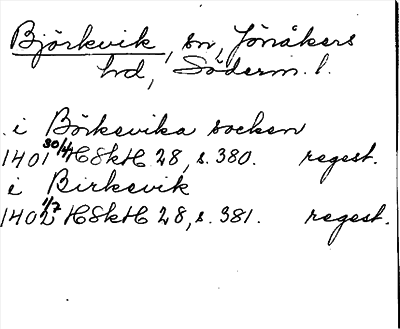 Björkvik, sn, Jönåkers
hd, Söderm. l.
i Börksvika socken
1401 30/4 HSkH 28, s. 380. regest.
i Birksvik
1402 1/7 HSkH 28, s. 381. regest.